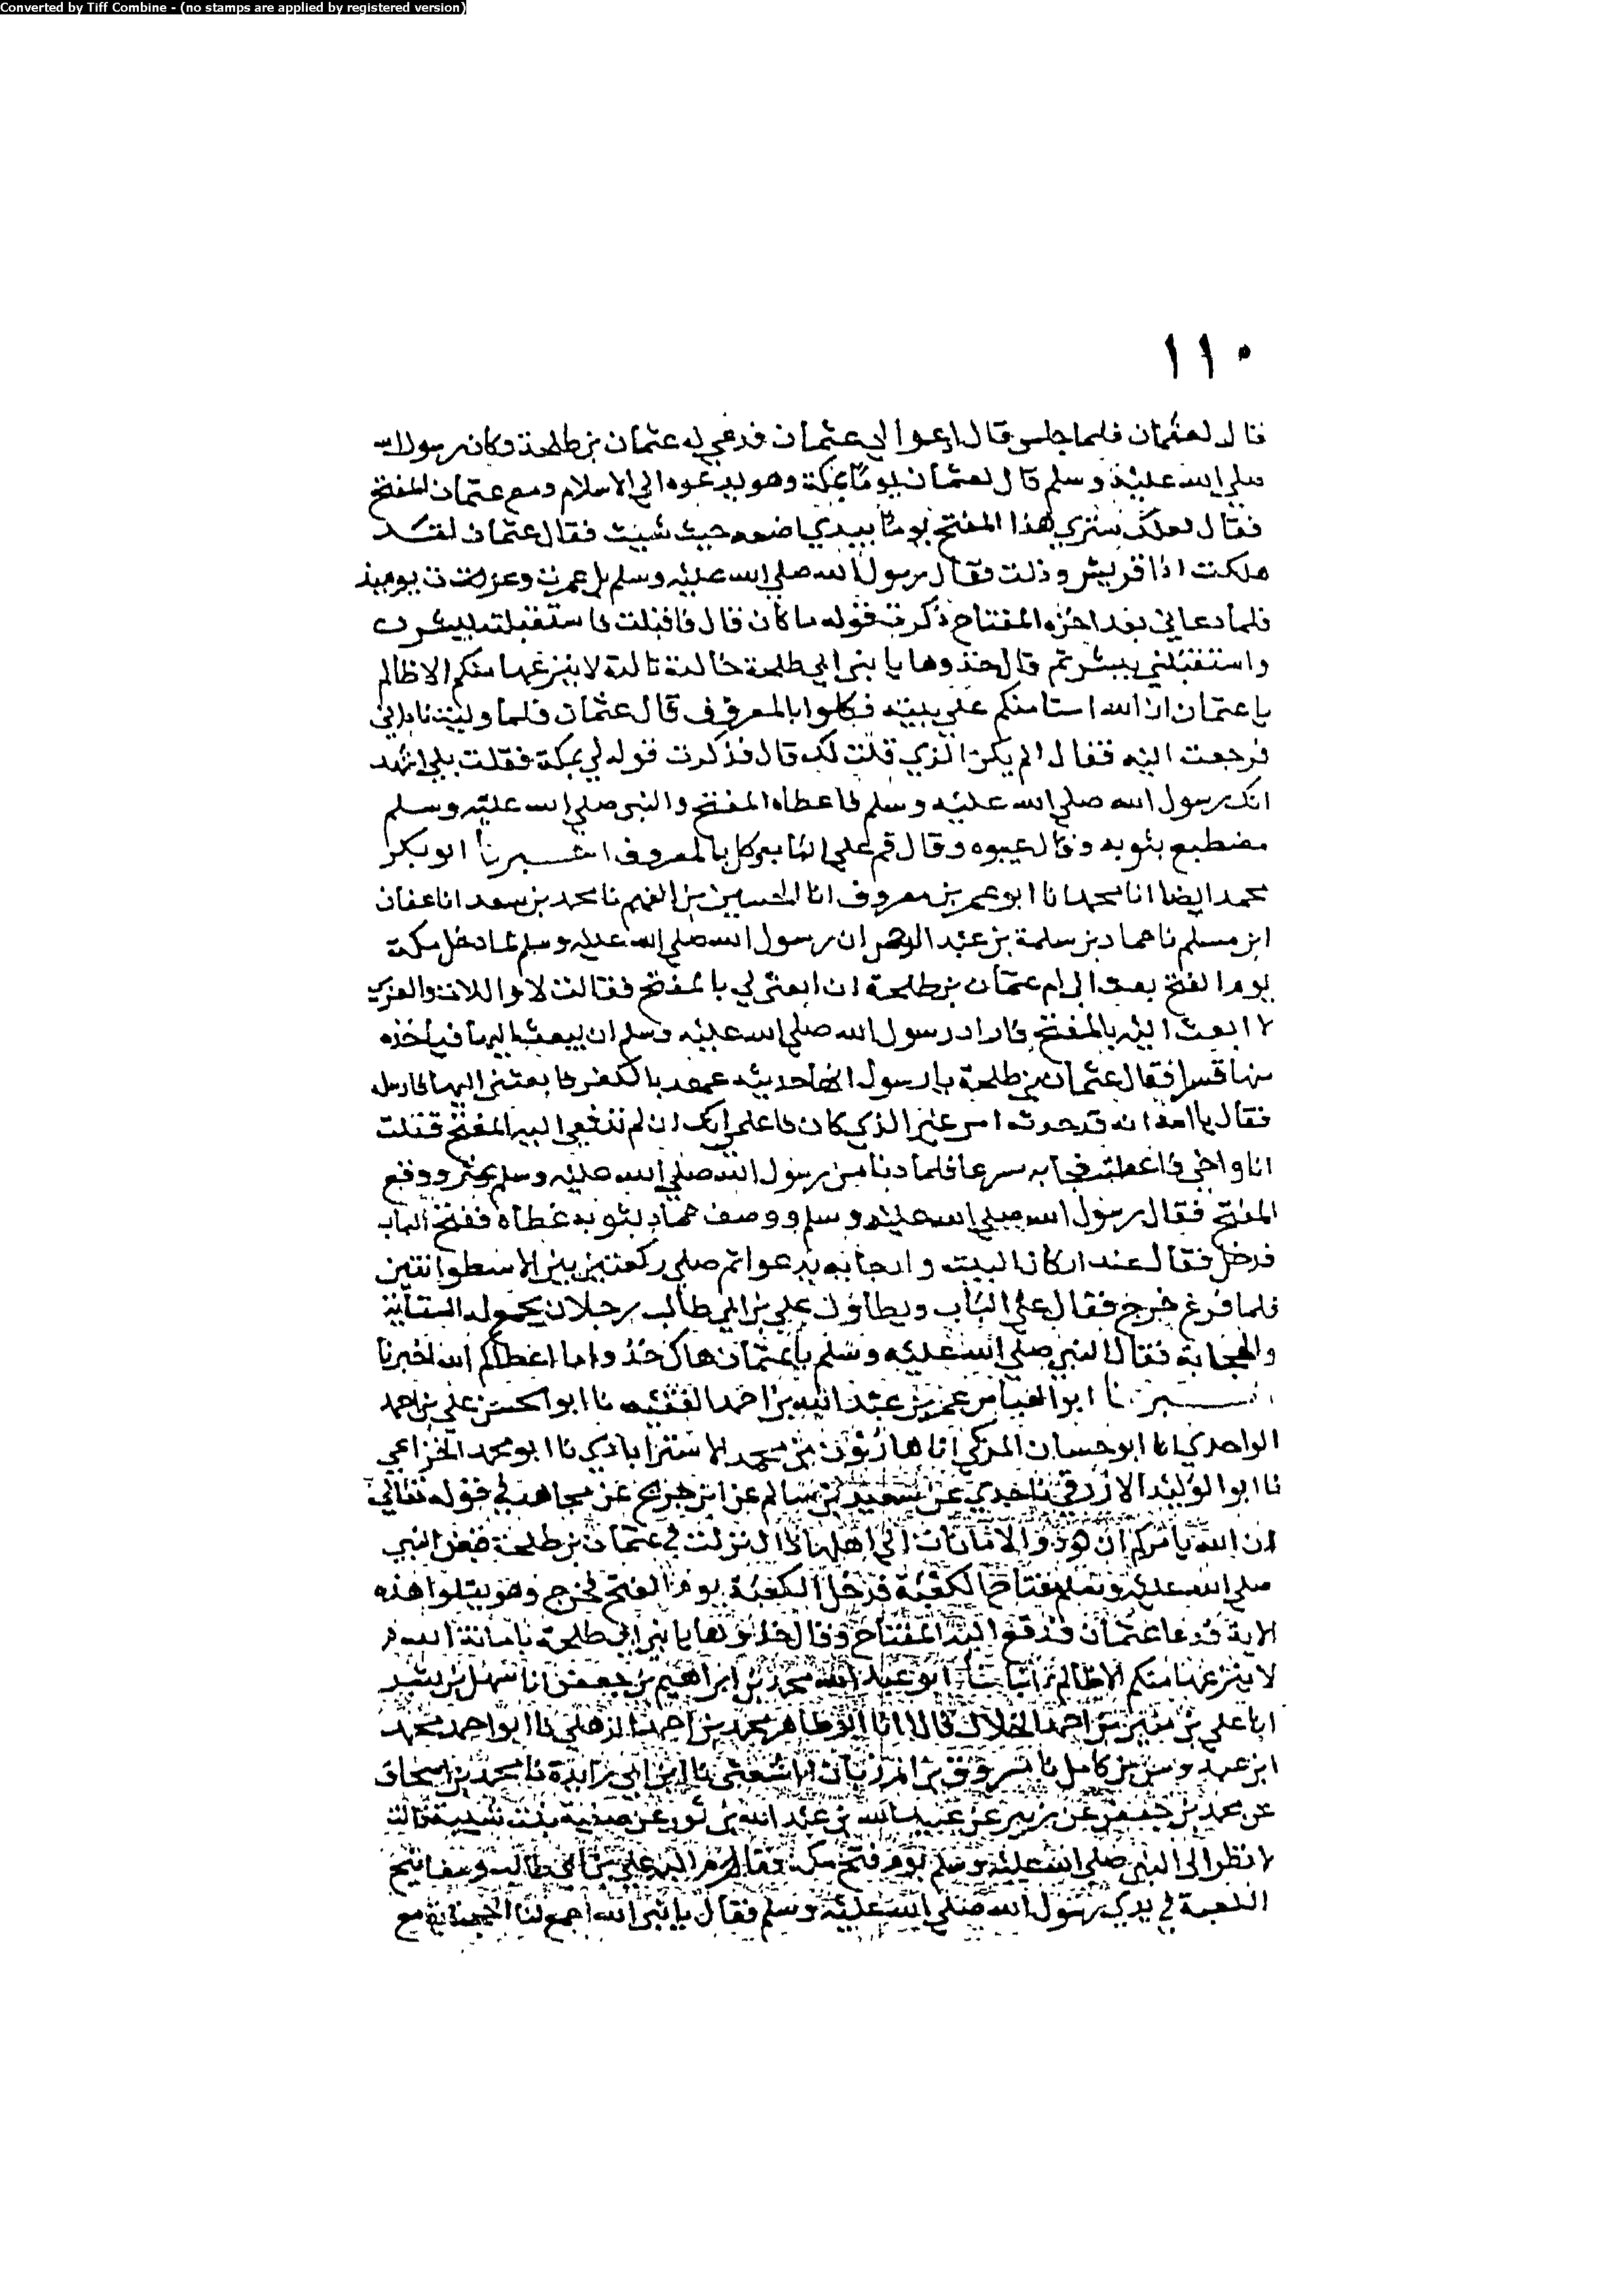 Converted by Tiff Combine - (no stamps are applied by registered version)
١١٠
قال لعثمان فلما جلس قال ادعوا لي عثمان فدعي له عثمان بن طلحة وكان رسول الله
صلى الله عليه وسلم قال لعثمان يوما بمكة وهو يدعوه الى الاسلام ومع عثمان المفتح
فقال لعلك ستري هذا المفتح يوما بيدي اضعه حيث شيت فقال عثمان لقد
هلكت اذا قريش وذلت فقال رسول الله صلي الله عليه وسلم بل عمرت وعزت يوميذ
فلما دعاني بعد اخذه المفتاح ذكرت قوله ما كان قال فاقبلت فاستقبلته ببشر
واستقبلني ببشر ثم قال خذوها يا بني ابي طلحة خالدة تالدة لا ينزعها منكم الا ظالم
يا عثمان ان الله استامنكم علي بيته فكلوا بالمعروف قال عثمان فلما وليت ناداني
فرجعت اليه فقال الم يكن الذي قلت لك قال فذكرت قوله لي بمكة فقلت بلي اشهد
انك رسول الله صلي الله عليه وسلم فاعطاه المفتح والنبي صلي الله عليه وسلم
مضطبع بثوبه وقال غيبوه وقال قم علي الباب وكل بالمعروف اخبرنا ابو بكر
محمد ايضا انا محمد انا ابو عمر بن معروف انا الحسين بن الفهم نا محمد بن سعد انا عفان
ابن مسلم نا حماد بن سلمة بن عبد الرحمن ان رسول الله صلي الله عليه وسلم لما دخل مكة
يوم الفتح بعث الي ام عثمان بن طلحة ان ابعثي لي بالمفتح فقالت لا واللات والعزي
لا ابعث اليه بالمفتح فاراد رسول الله صلي الله عليه وسلم ان يبعث اليها فياخذه
منها قسرا فقال عثمان بن طلحة يا رسول الله انها حديثه عهد بالكفر فابعثني اليها فارسل
فقال يا امه انه قد حدث امر غير الذي كان فاعلمي انك ان لم تدفعي اليه المفتح قتلت
انا واخي فاعطته فجا به مسرعا فلما دنا من رسول الله صلي الله عليه وسلم عثر ووقع
المفتح فقال رسول الله صلي الله عليه وسلم ووصف حماد بثوبه غطاه ففتح الباب
فدخل فقال عند اركان البيت وارجائه يدعوا ثم صلي ركعتين بين الاسطوانتين
فلما فرغ خرج فقال علي الباب ويطاول علي بن ابي طالب رجلان يجمع له السقاية
والحجابة فقال النبي صلي الله عليه وسلم يا عثمان هاك خذوا ما اعطاكم الله اخبرنا
اخبرنا ابو العباس عمر بن عبد الله بن احمد الفقيه نا ابو الحسن علي بن احمد
الواحدي انا ابو حسان المزكي انا هارون بن محمد الاستراباذي نا ابو محمد الخزاعي
نا ابو الوليد الازرقي نا جدي عن سعيد بن سالم عن ابن جريج عن مجاهد في قوله تعالي
ان الله يامركم ان تودوا الامانات الي اهلها قال نزلت في عثمان بن طلحة قبض النبي
صلي الله عليه وسلم مفتاح الكعبة فدخل الكعبة يوم الفتح فخرج وهو يتلوا هذه
الاية فدعا عثمان فدفع اليه المفتاح وقال خذوها يا بني ابي طلحة بامانة الله
لا ينزعها منكم الا ظالم انبانا ابو عبد الله محمد بن ابراهيم بن جعفر انا سهل بن بشر
انا علي بن منير بن احمد الخلال قال انا ابو طاهر محمد بن احمد الذهلي نا ابو احمد محمد
ابن عبدوس بن كامل نا مسروق بن المرزبان نا ابن ابي زايدة نا محمد بن اسحاق
عن محمد بن جعفر بن زبير عن عبيد الله بن عبد الله بن ثور عن صفية بنت شيبة قالت
لانظر الى النبي صلي الله عليه وسلم يوم فتح مكة فقام اليه علي بن ابي طالب ومفاتيح
الكعبة في يدي رسول الله صلي الله عليه وسلم فقال يا نبي الله اجمع لنا الحجابة مع